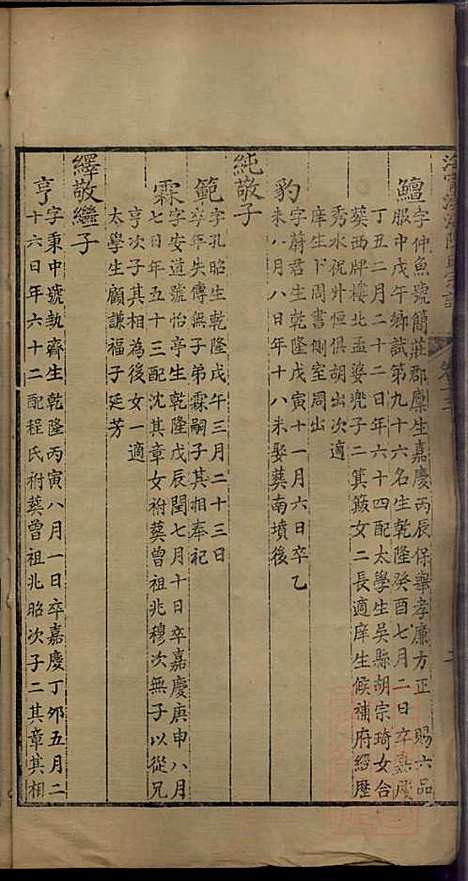 鱣字仲魚號簡莊郡廩生嘉慶丙辰保舉孝廉方正 賜六品
服中戊午鄉試第九十六名生乾隆癸酉七月二日卒嘉慶
丁丑二月二十二日年六十四配太學生吳縣胡宗琦女合
葬西牌樓北盃婆兜子二箕簸女二長適庠生候補府經歷
秀水祝廾恒俱胡出次適
庠生卞周書側室周出
豹字蔚君生乾隆戊寅十一月六日卒乙
未八月八日年十八未娶葬南墳後
純敬子
範字孔昭生乾隆戊午三月二十三日
卒年失傳無子弟霖嗣子其相奉祀
霖字安道號怡亭生乾隆戊辰閏七月十日卒嘉慶庚申八月
七日年五十三配沈其章女祔葬曾祖兆穆次無子以從兄
亨次子其相為後女一適
太學生顧謙福子延芳
繹敬繼子
亨字秉中號執齋生乾隆丙寅八月一日卒嘉慶丁卯五月二
十六日年六十二配程氏祔葬曾祖兆昭次子二其章其相